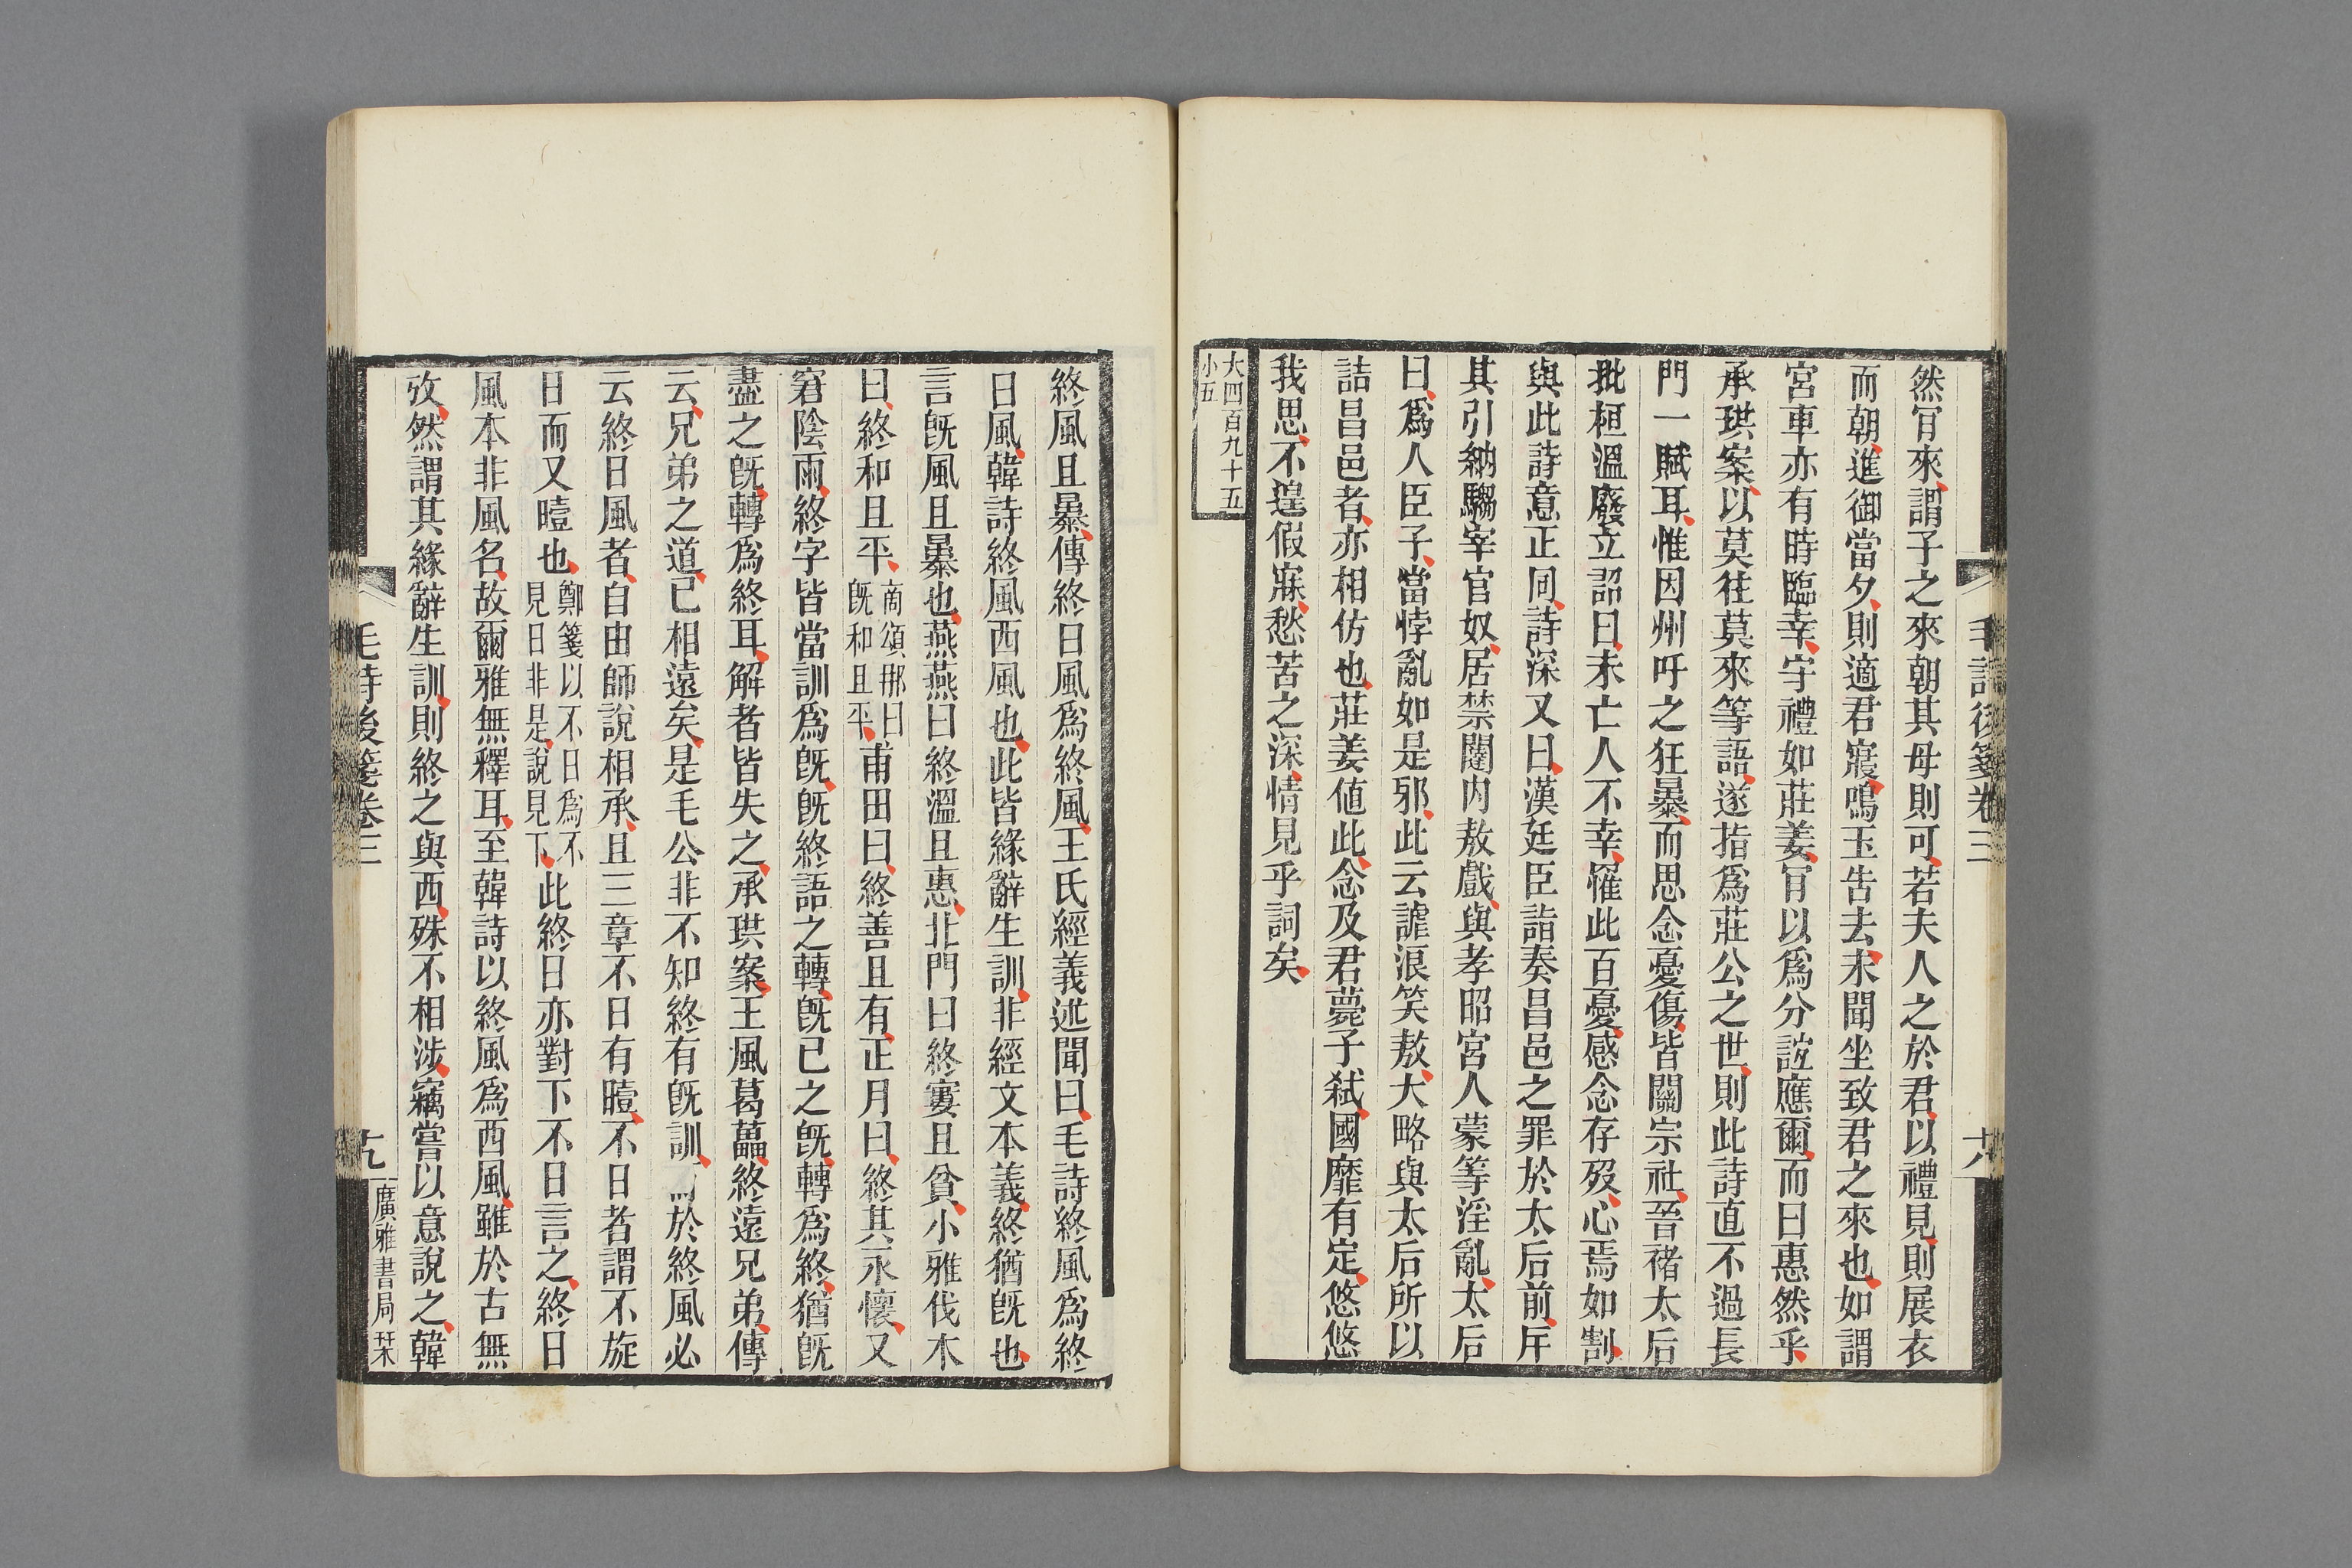 然肎來謂子之來朝其母則可若夫人之於君以禮見則展衣
而朝進御當夕則適君寢鳴玉告去未聞坐致君之來也如謂
宮車亦有時臨幸宇禮如莊姜肎以爲分誼應爾而曰惠然乎
承珙案以莫往莫來等語遂指爲莊公之世則此詩直不過長
門一賦耳惟因州吁之狂暴而思念憂傷皆關宗社晉褚太后
批桓溫廢立詔曰未亡人不幸罹此百憂感念存歿心焉如割
與此詩意正同詩深又曰漢廷臣詣奏昌邑之罪於太后前㡿
其引納騶宰官奴居禁闥内敖戲與孝昭宮人蒙等淫亂太后
曰爲人臣子當悖亂如是邪此云謔浪笑敖大略與太后所以
詰昌邑者亦相仿也莊姜值此念及君薨子弑國靡有定悠悠
我思不遑假寐愁苦之深情見乎詞矣
大四百九十五
小五
毛詩後箋卷三
十八
終風且暴傳終日風爲終風王氏經義述聞曰毛詩終風爲終
日風韓詩終風西風也此皆緣辭生訓非經文本義終猶旣也
言旣風且暴也燕燕曰終溫且惠北門曰終窶且貧小雅伐木
曰終和且平商頌那曰旣和且平甫田曰終善且有正月曰終其永懷又
窘陰雨終字皆當訓爲旣旣終語之轉旣已之旣轉爲終猶旣
盡之旣轉爲終耳解者皆失之承珙案王風葛藟終遠兄弟傳
云兄弟之道已相遠矣是毛公非不知終有旣訓於終風必
云終日風者自由師說相承且三章不日有曀不日者謂不旋
日而又曀也鄭箋以不日爲不見日非是說見下此終日亦對下不日言之終日
風本非風名故爾雅無釋耳至韓詩以終風爲西風雖於古無
攷然謂其緣辭生訓則終之與西殊不相涉竊嘗以意說之韓
毛詩後箋卷三
十九
廣雅書局栞